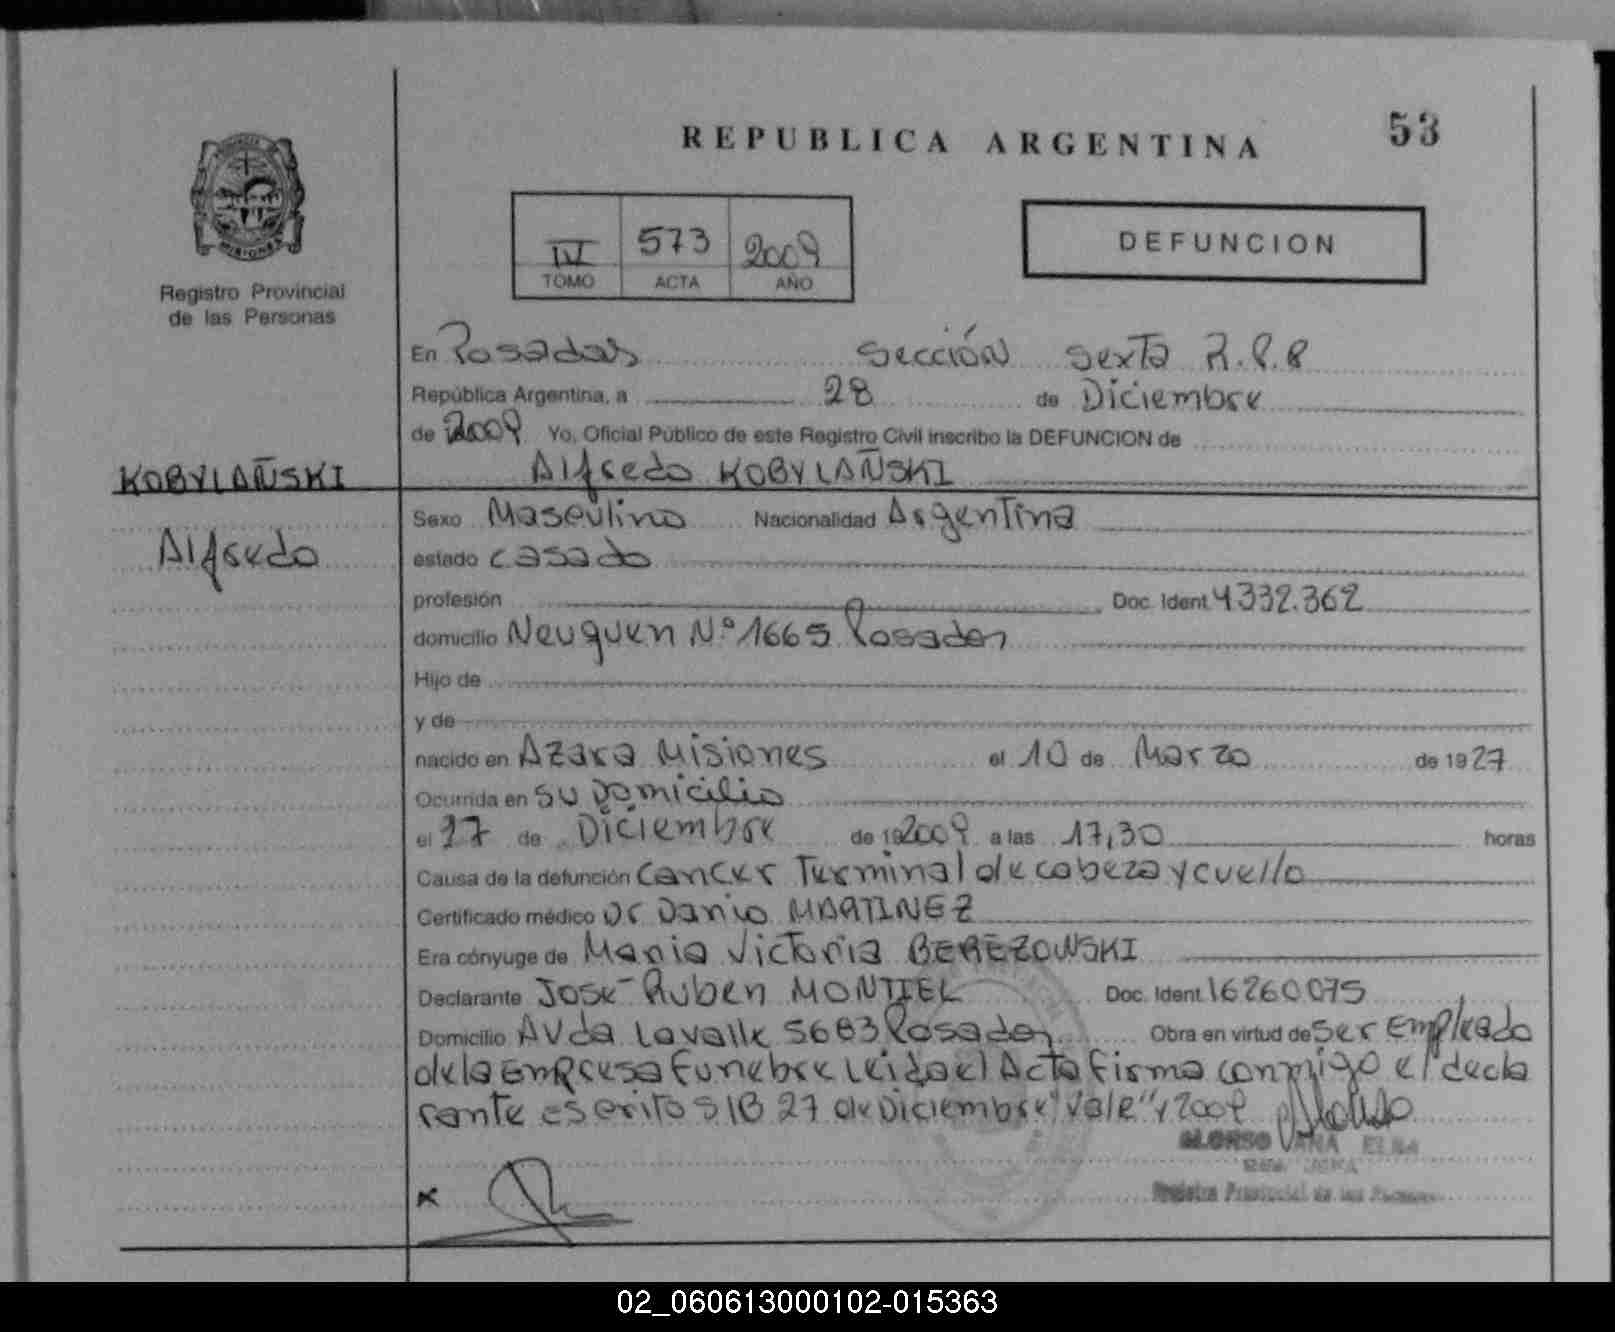 REPUBLICA ARGENTINA
53
IV 573 2009
TOMO ACTA AÑO
DEFUNCION
Registro Provincial
de las Personas
En Posadas Sección Sexta R.P.P
República Argentina, a 28 de Diciembre
de 2009 Yo, Oficial Público de este Registro Civil inscribo la DEFUNCION de
KOBYLAÑSKI Alfredo KOBYLAÑSKI
Sexo Masculino Nacionalidad Argentina
Alfredo
estado casado
profesión Doc. Ident. 4332.362
domicilio Neuquen N.º 1665 Posadas
Hijo de
y de
nacido en Azara Misiones el 10 de Marzo de 1927
Ocurrida en su Domicilio
el 27 de Diciembre de 192009 a las 17,30 horas
Causa de la defunción Cancer Terminal de cabeza y cuello
Certificado médico Dr Danio MARTINEZ
Era cónyuge de Maria Victoria BEREZOWSKI
Declarante José Ruben MONTIEL Doc. Ident. 16260075
Domicilio AVda Lavalle 5683 Posadas Obra en virtud de ser Empleado
de la Empresa Funebre Leida el Acta Firma conmigo el decla
rante escrito S/B 27 de Diciembre "Vale" y 2009
ALONSO ANA ELBA
Registro Provincial de las Personas
02_060613000102-015363